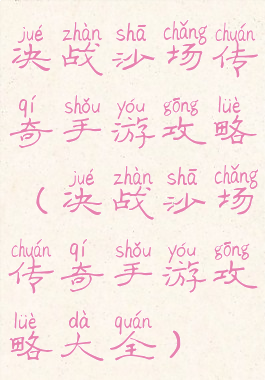 jué zhàn shā chǎng chuán
决战沙场传
qí shǒu yóu gōng lüè
奇手游攻略
jué zhàn shā chǎng
（决战沙场
chuán qí shǒu yóu gōng
传奇手游攻
lüè dà quán
略大全）